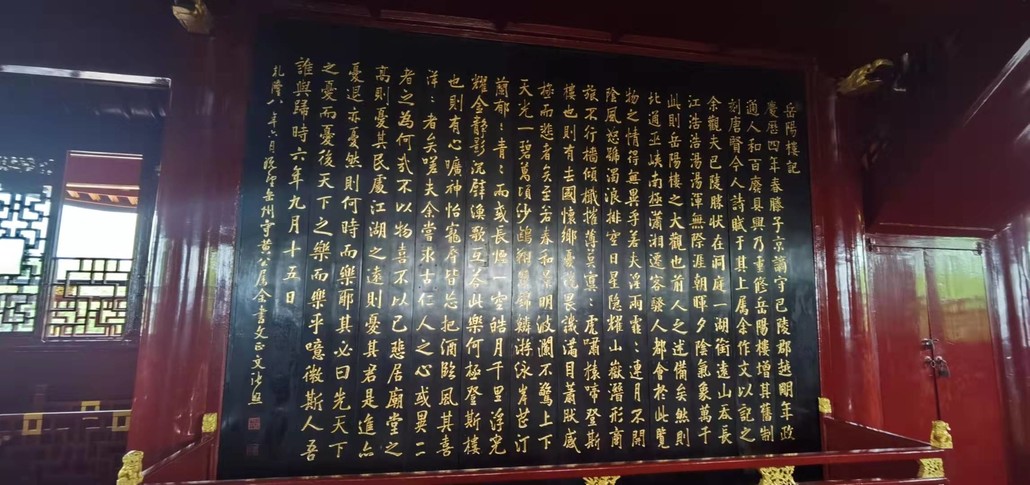 岳陽樓記
慶曆四年春滕子京謫守巴陵郡越明年政
通人和百廢具興乃重修岳陽樓增其舊制
刻唐賢今人詩賦于其上屬余作文以記之
余觀夫巴陵勝狀在洞庭一湖銜遠山吞長
江浩浩湯湯渾無際涯朝暉夕陰氣象萬千
此則岳陽樓之大觀也前人之述備矣然則
北通巫峽南極瀟湘遷客騷人都會於此覽
物之情得無異乎若夫淫雨霏〻連月不開
陰風怒號濁浪排空日星隱耀山嶽潛形商
旅不行檣傾檝摧薄暮冥〻虎嘯猿啼登斯
樓也則有去國懷鄉憂讒畏譏滿目蕭然感
極而悲者矣至若春和景明波瀾不驚上下
天光一碧萬頃沙鷗翔集錦鱗游泳岸芷汀
蘭郁〻青〻而或長煙一空皓月千里浮光
耀金靜影沉璧漁歌互答此樂何極登斯樓
也則有心曠神怡寵辱皆忘把酒臨風其喜
洋〻者矣嗟夫余嘗求古仁人之心或異二
者之為何哉不以物喜不以己悲居廟堂之
高則憂其民處江湖之遠則憂其君是進亦
憂退亦憂然則何時而樂耶其必曰先天下
之憂而憂後天下之樂而樂乎噫微斯人吾
誰與歸時六年九月十五日
乾隆八年六月既望岳州守黃公屬余書文正文張照